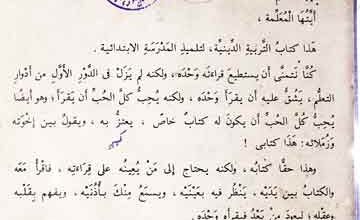 أيتها المعلمة ،
هذا كتاب التربية الدينية، لتلميذ المدرسة الابتدائية .
كنا نتمنى أن يستطيع قراءته وحده، ولكنه لم يزل فى الدور الأول من أدوار
التعلم، يشق عليه أن يقرأ وحده ، ولكنه يحب كل الحب أن يقرأ؛ وهو أيضا
يحب كل الحب أن يكون له كتاب خاص ، يعتز به ، ويقول بين إخوته
وزملائه: هذا كتابى !
وهذا حقا كتابه، ولكنه يحتاج إلى من يعينه على قراءته ، فاقرأ معه
والكتاب بين يديه، ينظر فيه بعينيه، ويستمع منك بأذنيه، ويفهم بقلبه
وعقله؛ ليعود من بعد فيقرأه وحده.